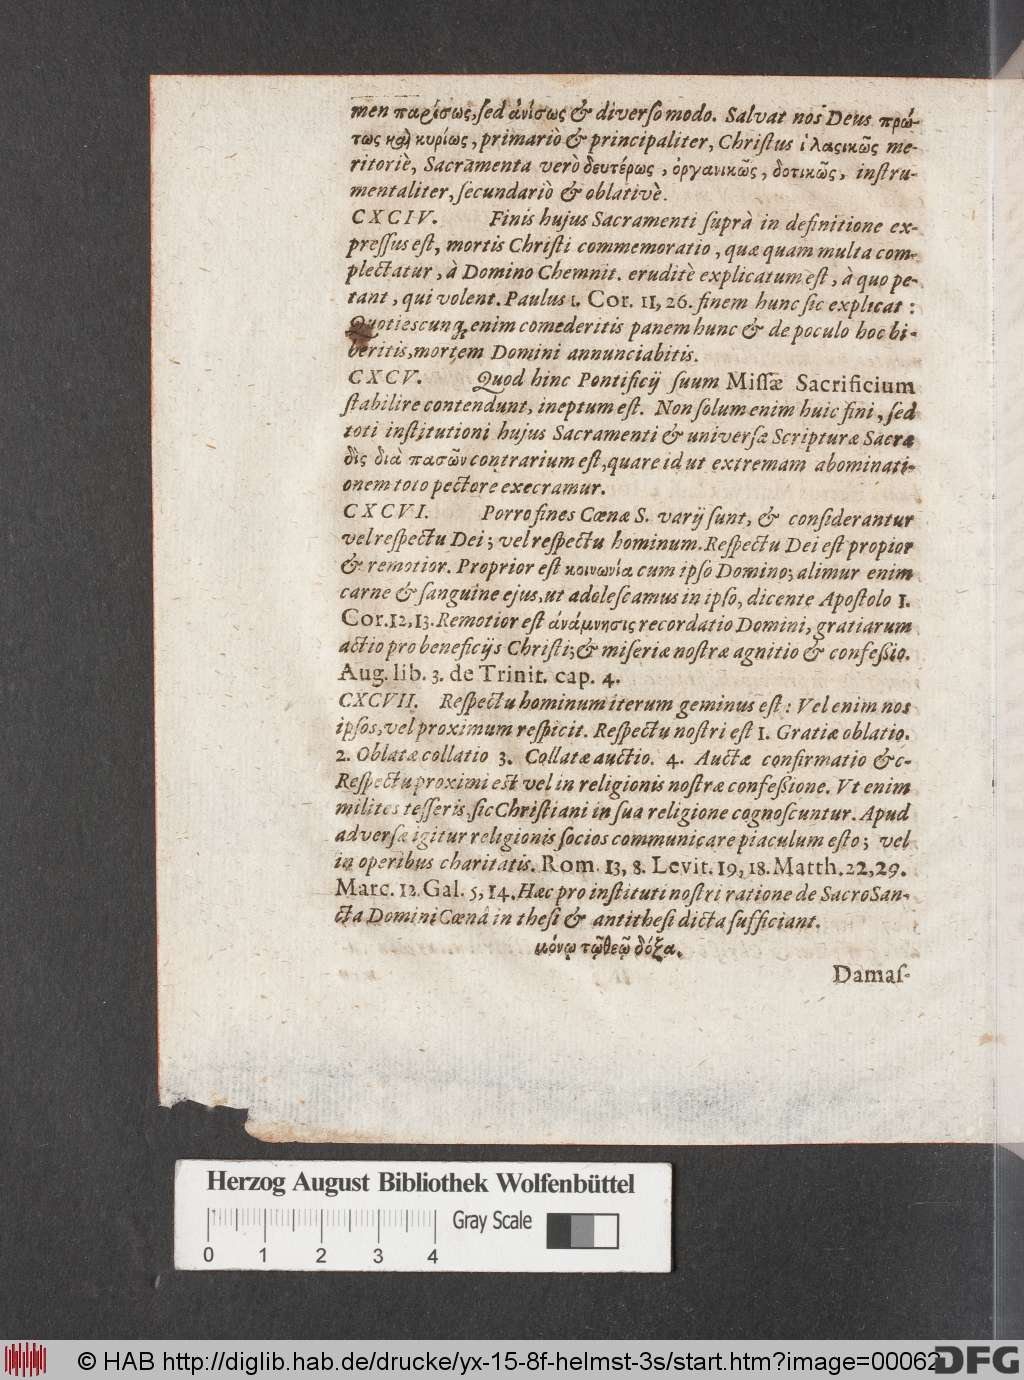 men παρίσως, ſed ἀνίσως & diverſo modo. Salvat nos Deus πρώ-
τως καὶ κυρίως, primariò & principaliter, Chriſtus ἱλαςικῶς me-
ritoriè, Sacramenta verò δευτέρως, ὀργανικῶς, δοτικῶς, inſtru-
mentaliter, ſecundariò & oblativè.
CXCIV. Finis hujus Sacramenti ſuprà in definitione ex-
preſſus eſt, mortis Chriſti commemoratio, quæ quam multa com-
plectatur, à Domino Chemnit. eruditè explicatum eſt, à quo pe-
tant, qui volent. Paulus 1. Cor. 11, 26. finem hunc ſic explicat:
Quotiescunq; enim comederitis panem hunc & de poculo hoc bi-
beritis, mortem Domini annunciabitis.
CXCV. Quod hinc Pontificij ſuum Miſſæ Sacrificium
ſtabilire contendunt, ineptum eſt. Non ſolum enim huic fini, ſed
toti inſtitutioni hujus Sacramenti & univerſæ Scripturæ Sacræ
δὶς διὰ πασῶν contrarium eſt, quare id ut extremam abominati-
onem toto pectore execramur.
CXCVI. Porro fines Cœnæ S. varij ſunt, & conſiderantur
vel reſpectu Dei; vel reſpectu hominum. Reſpectu Dei eſt propior
& remotior. Proprior eſt κοινωνία cum ipſo Domino; alimur enim
carne & ſanguine ejus, ut adoleſcamus in ipſo, dicente Apoſtolo 1.
Cor. 12, 13. Remotior eſt ἀνάμνησις recordatio Domini, gratiarum
actio pro beneficijs Chriſti; & miſeriæ noſtræ agnitio & confeſſio.
Aug. lib. 3. de Trinit. cap. 4.
CXCVII. Reſpectu hominum iterum geminus eſt: Vel enim nos
ipſos, vel proximum reſpicit. Reſpectu noſtri eſt 1. Gratiæ oblatio.
2. Oblatæ collatio 3. Collatæ auctio. 4. Auctæ confirmatio &c-
Reſpectu proximi eſt vel in religionis noſtræ confeßione. Vt enim
milites teſſeris, ſic Chriſtiani in ſua religione cognoſcuntur. Apud
adverſæ igitur religionis ſocios communicare piaculum eſto; vel
in operibus charitatis. Rom. 13, 8. Levit. 19, 18. Matth. 22, 29.
Marc. 12. Gal. 5, 14. Hæc pro inſtituti noſtri ratione de SacroSan-
cta Domini Cœnâ in theſi & antitheſi dicta ſufficiant.
μόνῳ τῷ θεῷ δόξα.
Damaſ-
Herzog August Bibliothek Wolfenbüttel
Gray Scale
0 1 2 3 4
© HAB http://diglib.hab.de/drucke/yx-15-8f-helmst-3s/start.htm?image=00062
DFG